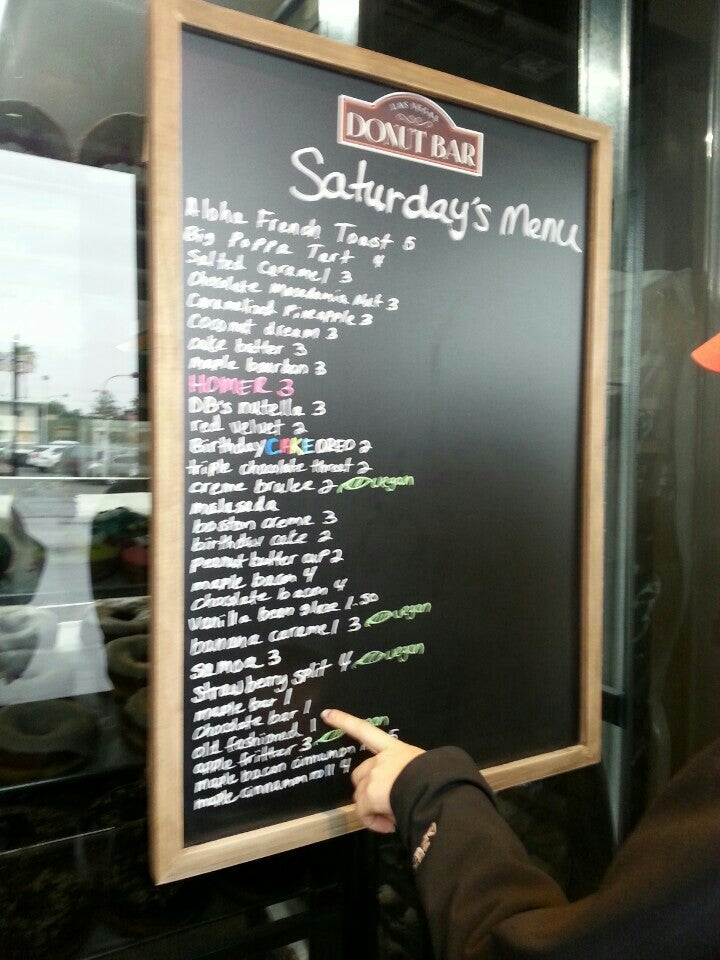 LAS VEGAS
DONUT BAR
Saturday's Menu
Aloha French Toast 5
Big Poppa Tart 4
Salted Caramel 3
Chocolate macadamia Nut 3
Caramelized Pineapple 3
Coconut dream 3
cake batter 3
maple bourbon 3
HOMER 3
DB's nutella 3
red velvet 2
Birthday CAKE OREO 2
triple chocolate threat 2
creme brulee 2 vegan
malasada
boston creme 3
birthday cake 2
peanut butter cup 2
maple bacon 4
chocolate bacon 4
vanilla bean glaze 1.50
banana caramel 3 vegan
samoa 3
strawberry split 4 vegan
maple bar 1
chocolate bar 1
old fashioned 1
apple fritter 3 vegan
maple bacon cinnamon 5
maple cinnamon roll 4